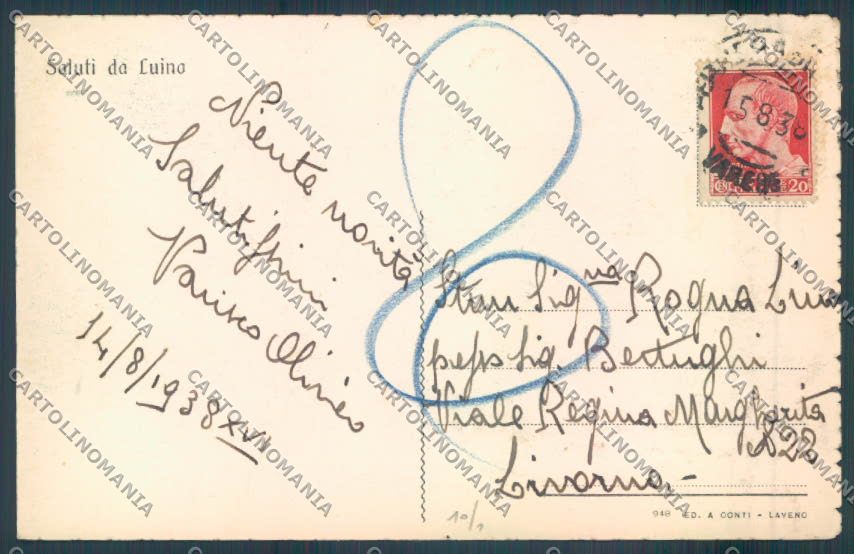 Saluti da Luino
Niente novità
Salutissimi
14/8/1938 XVI
8
Sig.na Rogna
Sig. Bertughi
Viale Regina Margherita
Livorno
15.8.38
VARESE
CENT 20
10/1
948 ED. A CONTI - LAVENO
CARTOLINOMANIA